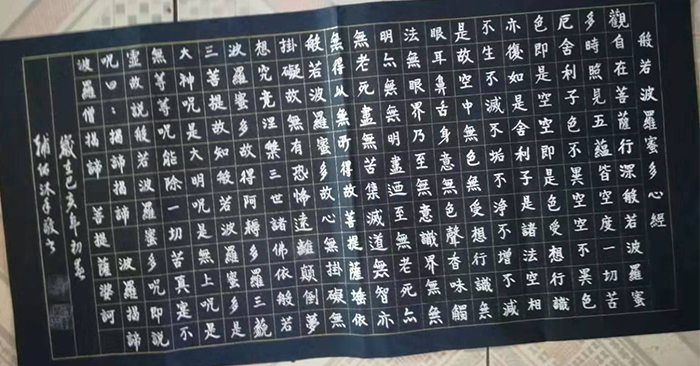 般若波羅蜜多心經
觀自在菩薩行深般若波羅蜜
多時照見五蘊皆空度一切苦
厄舍利子色不異空空不異色
色即是空空即是色受想行識
亦復如是舍利子是諸法空相
不生不滅不垢不淨不增不減
是故空中無色無受想行識無
眼耳鼻舌身意無色聲香味觸
法無眼界乃至無意識界無無
明亦無無明盡迺至無老死亦
無老死盡無苦集滅道無智亦
無得以無所得故菩提薩埵依
般若波羅蜜多故心無掛礙無
掛礙故無有恐怖遠離顛倒夢
想究竟涅槃三世諸佛依般若
波羅蜜多故得阿耨多羅三藐
三菩提故知般若波羅蜜多是
大神呪是大明呪是無上呪是
無等等呪能除一切苦真實不
虛故說般若波羅蜜多呪即說
呪曰：揭諦揭諦 波羅揭諦
波羅僧揭諦 菩提薩婆訶
歲在己亥年初夏
沐手敬書